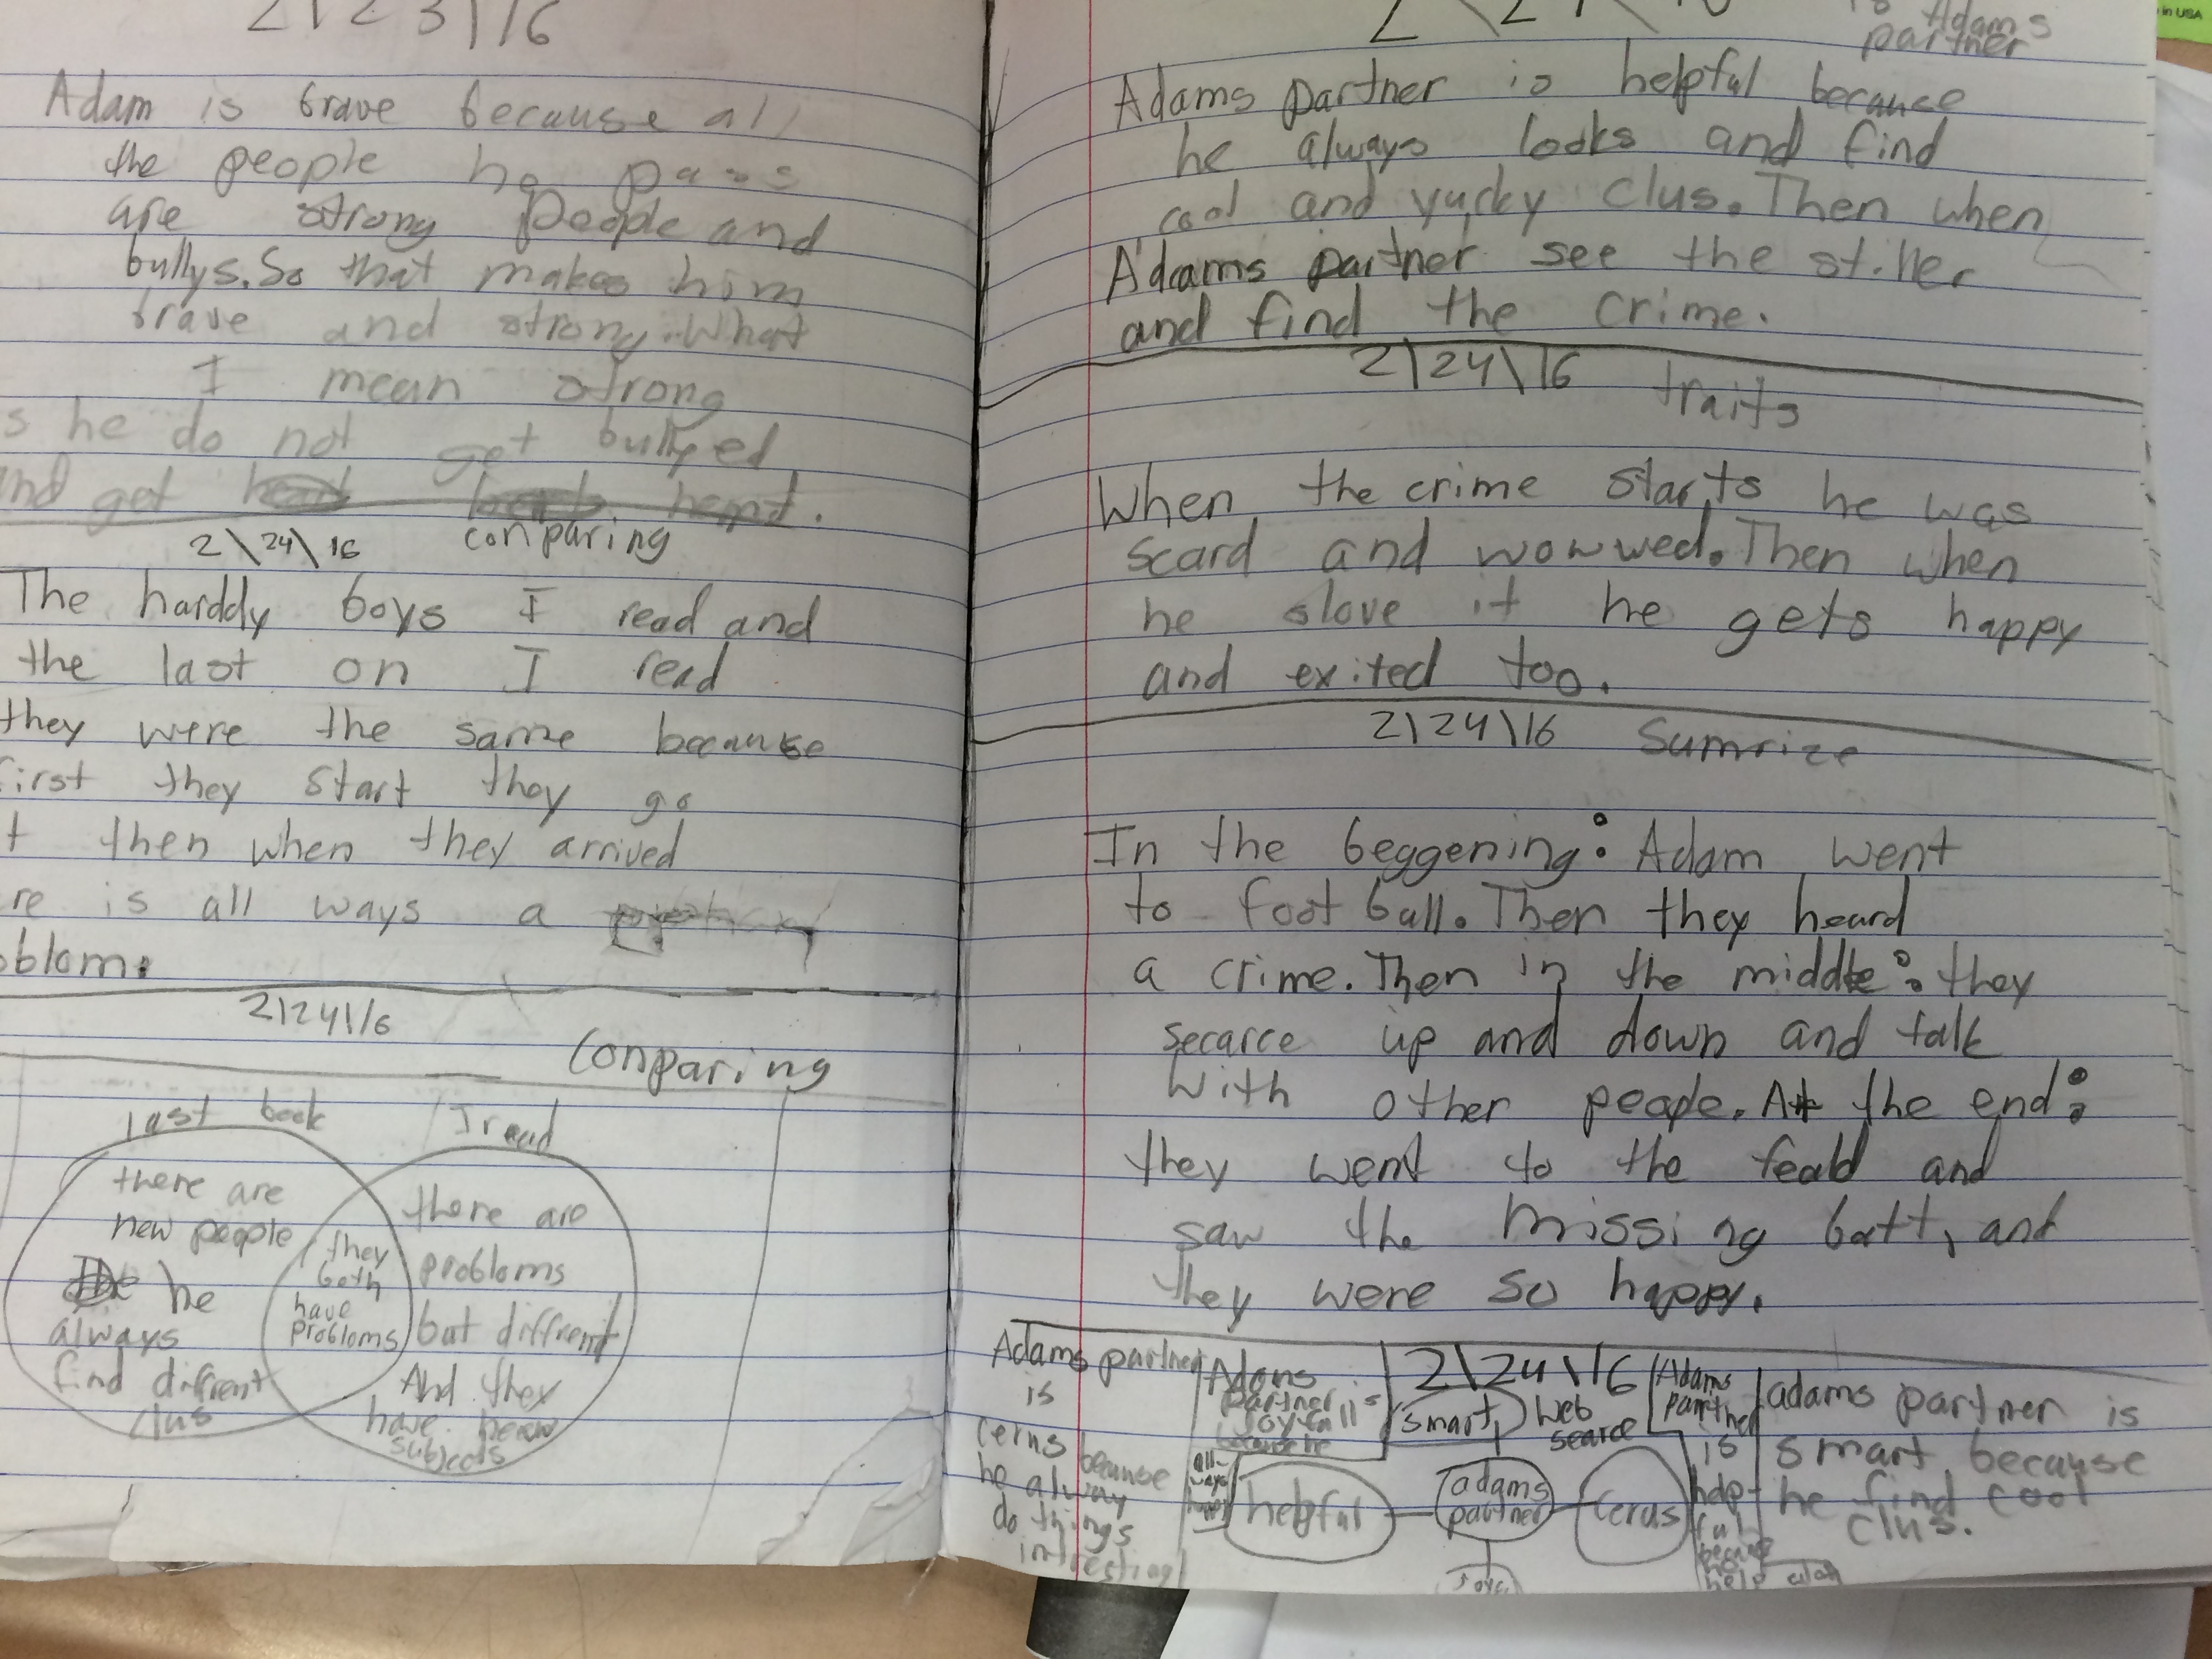 2\23\16
Adam is brave because all
the people he pass
are strong people and
bullys. So that makes him
brave and strong. What
I mean strong
s he do not get bullyed
and get
2\24\16 conparing
The harddy boys I read and
the last on I read
they were the same because
first they start they go
t then when they arrived
re is all ways a
oblom.
2\24\16
Conparing
last book I read
there are
new people
he
always
find diffrent
clus
they
both
have
probloms
there are
probloms
but diffrent
And they
have
subjects
in USA
Adams
partner
Adams partner is helpful because
he always looks and find
cool and yucky clus. Then when
Adams partner see the
and find the crime.
2\24\16 traits
When the crime starts he was
scard and wowwed. Then when
he slove it he gets happy
and exited too.
2\24\16 Sumrize
In the beggening: Adam went
to foot ball. Then they heard
a crime. Then in the middle: they
secarce up and down and talk
with other people. At the end:
they went to the feald and
saw the missing batt, and
they were so happy.
Adams partner
is
cerus because
he alway
do things
intresting
Adams
partner is
joyfull
because he
all-
ways
happy
2\24\16
smart
Web
searce
helpful
adams
partner
cerus
Adams
parther
is
help-
ful
because
help
adams partner is
smart because
he find cool
clus.